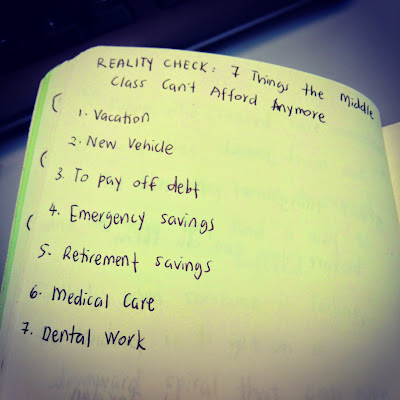 REALITY CHECK: 7 Things the Middle
Class Can't Afford Anymore
1. Vacation
2. New Vehicle
3. To pay off debt
4. Emergency savings
5. Retirement savings
6. Medical Care
7. Dental Work